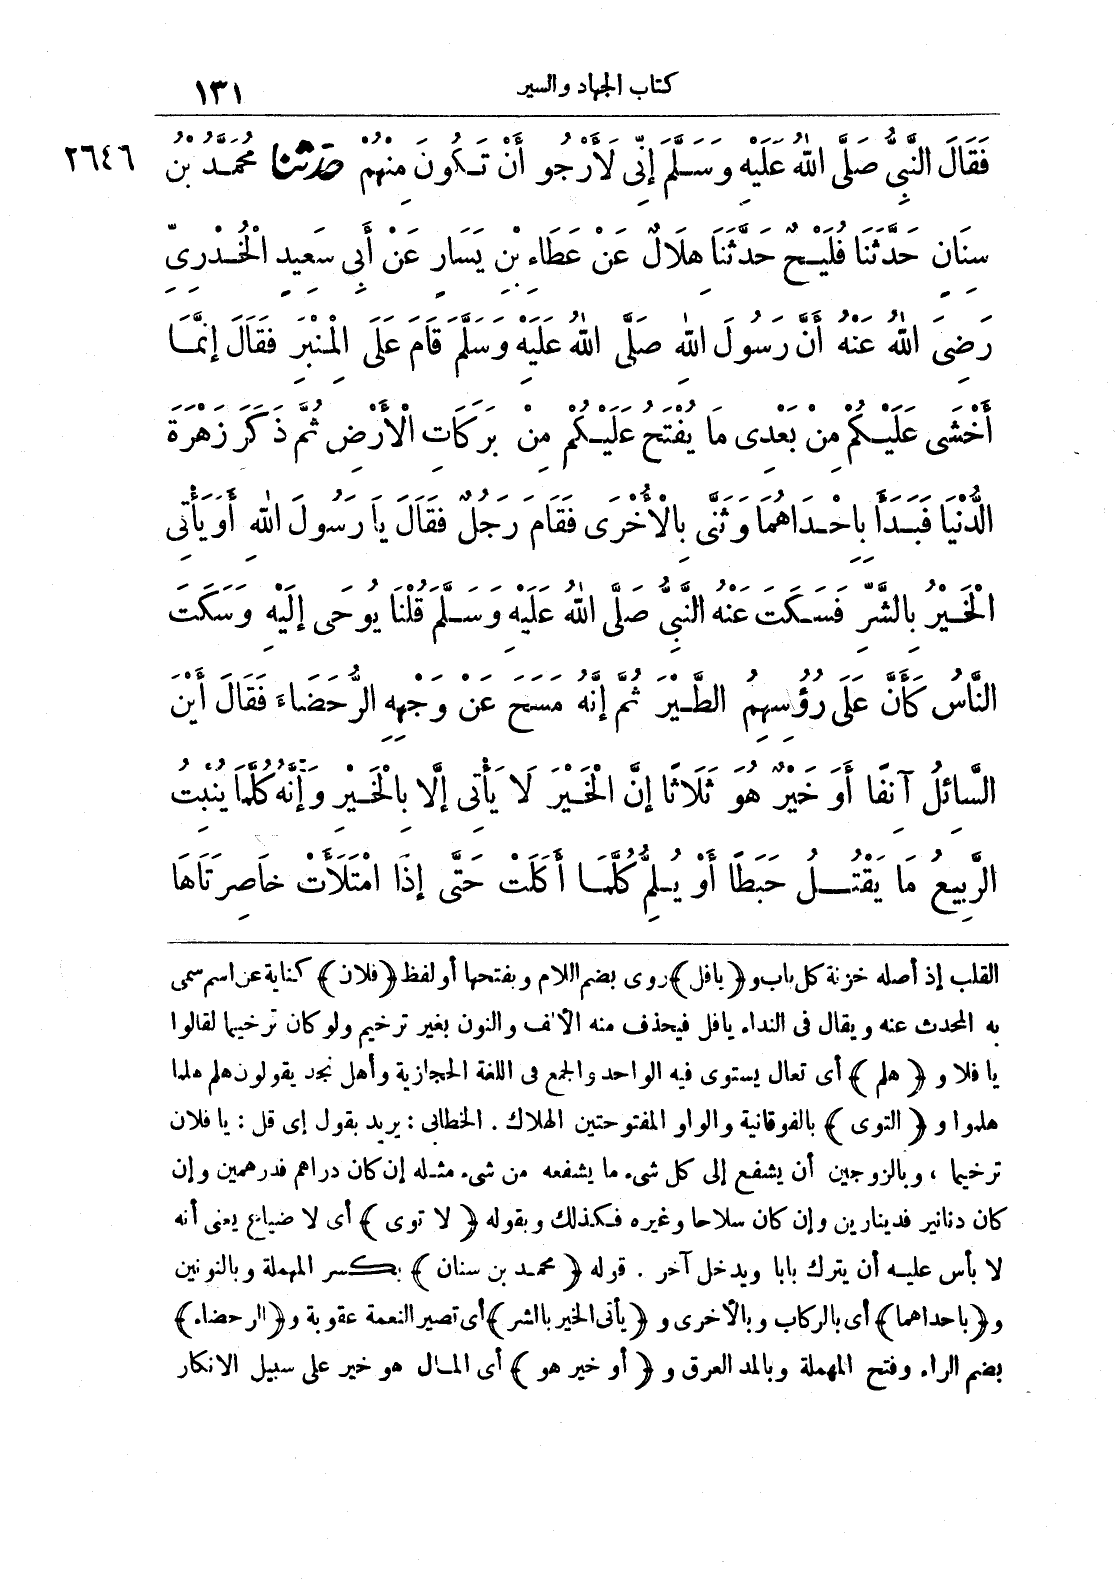 كتاب الجهاد والسير ١٣١
فَقَالَ النَّبِىُّ صَلَّى اللهُ عَلَيْهِ وَسَلَّمَ إِنِّى لَأَرْجُو أَنْ تَكُونَ مِنْهُمْ حَدَّثَنَا مُحَمَّدُ بْنُ ٢٦٤٦
سِنَانٍ حَدَّثَنَا فُلَيْحٌ حَدَّثَنَا هِلَالٌ عَنْ عَطَاءِ بْنِ يَسَارٍ عَنْ أَبِى سَعِيدٍ الْخُدْرِىِّ
رَضِىَ اللهُ عَنْهُ أَنَّ رَسُولَ اللهِ صَلَّى اللهُ عَلَيْهِ وَسَلَّمَ قَامَ عَلَى الْمِنْبَرِ فَقَالَ إِنَّمَا
أَخْشَى عَلَيْكُمْ مِنْ بَعْدِى مَا يُفْتَحُ عَلَيْكُمْ مِنْ بَرَكَاتِ الْأَرْضِ ثُمَّ ذَكَرَ زَهْرَةَ
الدُّنْيَا فَبَدَأَ بِإِحْدَاهُمَا وَثَنَّى بِالْأُخْرَى فَقَامَ رَجُلٌ فَقَالَ يَا رَسُولَ اللهِ أَوَ يَأْتِى
الْخَيْرُ بِالشَّرِّ فَسَكَتَ عَنْهُ النَّبِىُّ صَلَّى اللهُ عَلَيْهِ وَسَلَّمَ قُلْنَا يُوحَى إِلَيْهِ وَسَكَتَ
النَّاسُ كَأَنَّ عَلَى رُؤُسِهِمُ الطَّيْرَ ثُمَّ إِنَّهُ مَسَحَ عَنْ وَجْهِهِ الرُّحَضَاءَ فَقَالَ أَيْنَ
السَّائِلُ آنِفًا أَوَ خَيْرٌ هُوَ ثَلَاثًا إِنَّ الْخَيْرَ لَا يَأْتِى إِلَّا بِالْخَيْرِ وَإِنَّهُ كُلَّمَا يُنْبِتُ
الرَّبِيعُ مَا يَقْتُلُ حَبَطًا أَوْ يُلِمُّ كُلَّمَا أَكَلَتْ حَتَّى إِذَا امْتَلَأَتْ خَاصِرَتَاهَا
القلب إذ أصله خزنة كل باب و﴿يافل﴾ روى بضم اللام وبفتحها أو لفظ ﴿فلان﴾ كناية عن اسم سمى
به المحدث عنه ويقال فى النداء يافل فيحذف منه الألف والنون بغير ترخيم ولو كان ترخيما لقالوا
يا فلا و ﴿هلم﴾ أى تعال يستوى فيه الواحد والجمع فى اللغة الحجازية وأهل نجد يقولون هلم هلما
هلموا و ﴿التوى﴾ بالفوقانية والواو المفتوحتين الهلاك . الخطابى : يريد بقول إى قل : يا فلان
ترخيما ، وبالزوجين أن يشفع إلى كل شىء ما يشفعه من شىء مثله إن كان دراهم فدرهمين وإن
كان دنانير فدينارين وإن كان سلاحا وغيره فكذلك وبقوله ﴿لا توى﴾ أى لا ضياع يعنى أنه
لا بأس عليه أن يترك بابا ويدخل آخر . قوله ﴿محمد بن سنان﴾ بكسر المهملة وبالنونين
و﴿باحداهما﴾ أى بالركاب وبالأخرى و ﴿يأتى الخير بالشر﴾ أى تصير النعمة عقوبة و﴿الرحضاء﴾
بضم الراء وفتح المهملة وبالمد العرق و ﴿أو خير هو﴾ أى المال هو خير على سبيل الانكار